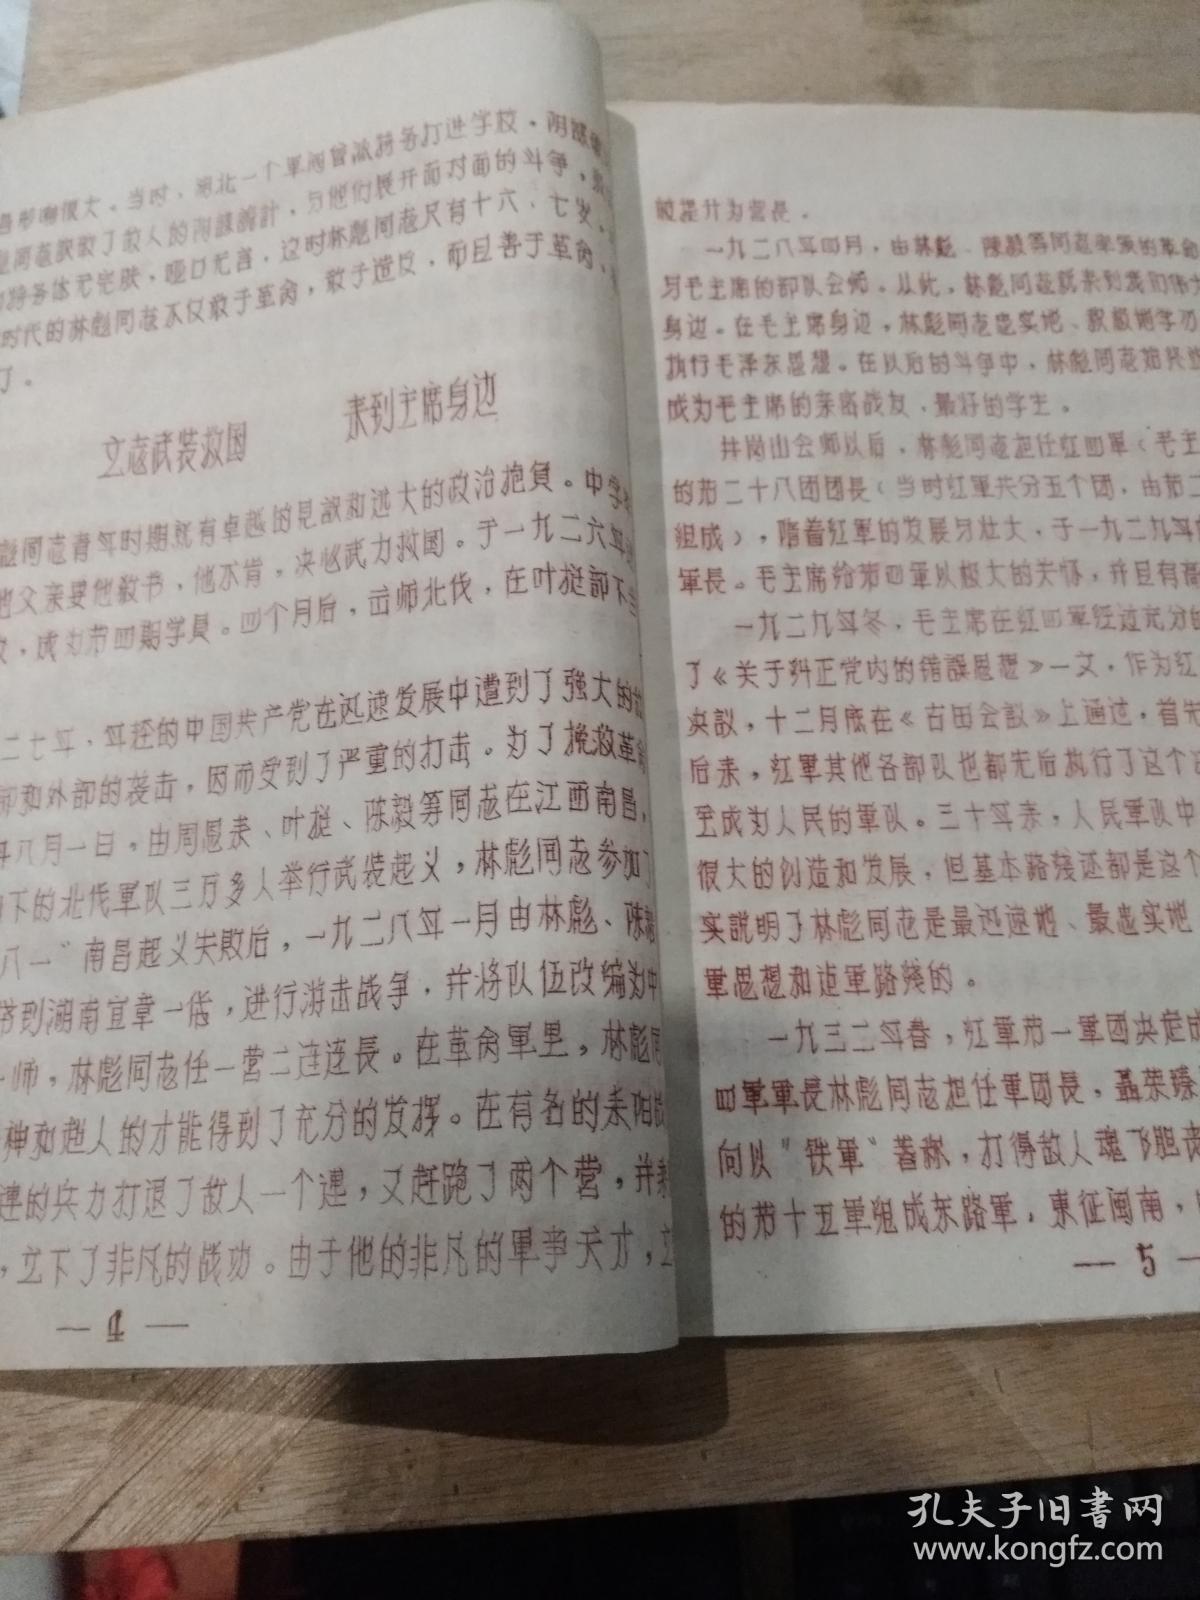 影响很大。当时，湖北一个军阀曾派特务打进学校，阴谋
同志识破了敌人的阴謀詭計，与他们展开面对面的斗争，
特务体无完肤，哑口无言，这时林彪同志只有十六、七岁，
时代的林彪同志不仅敢于革命，敢于造反，而且善于革命，
了。
立志武装救国　　来到主席身边
彪同志青年时期就有卓越的見識和远大的政治抱負。中学
他父亲要他教书，他不肯，决心武力救国。于一九二六年
，成为第四期学員。四个月后，出师北伐，在叶挺部下当
二七年，年轻的中国共产党在迅速发展中遭到了強大的
部和外部的袭击，因而受到了严重的打击。为了挽救革命
年八月一日，由周恩来、叶挺、陈毅等同志在江西南昌，
下的北伐軍队三万多人举行武装起义，林彪同志参加了
八一"南昌起义失敗后，一九二八年一月由林彪、陈毅
带到湖南宜章一帶，进行游击战争，并将队伍改编为中
师，林彪同志任一营二连连長。在革命軍里，林彪同
神和超人的才能得到了充分的发揮。在有名的耒阳战
連的兵力打退了敌人一个連，又赶跑了两个营，并
，立下了非凡的战功。由于他的非凡的軍事天才，立
— 4 —
被提升为营長。
一九二八年四月，由林彪、陳毅等同志率领的革命
与毛主席的部队会师。从此，林彪同志就来到我们伟大
身边。在毛主席身边，林彪同志忠实地、积极地学习
执行毛泽东思想。在以后的斗争中，林彪同志始终
成为毛主席的亲密战友、最好的学生。
井岗山会师以后，林彪同志担任红四軍（毛主
的第二十八团团長（当时红軍共分五个团，由第二
组成），随着红軍的发展与壮大，于一九二九年
軍長。毛主席给第四軍以极大的关怀，并且有
一九二九年冬，毛主席在红四軍经过充分的
了《关于纠正党内的错誤思想》一文，作为红
决議，十二月底在《古田会議》上通过，首先
后来，红軍其他各部队也都先后执行了这个
全成为人民的軍队。三十年来，人民軍队中
很大的创造和发展，但基本路綫还都是这个
实說明了林彪同志是最迅速地、最忠实地
軍思想和建軍路綫的。
一九三二年春，红軍第一軍团决定成
四軍軍長林彪同志担任軍团長，聶荣臻
向以"铁軍"著称，打得敌人魂飞胆丧
的第十五軍组成东路軍，東征闽南，
— 5 —
孔夫子旧書网
www.kongfz.com